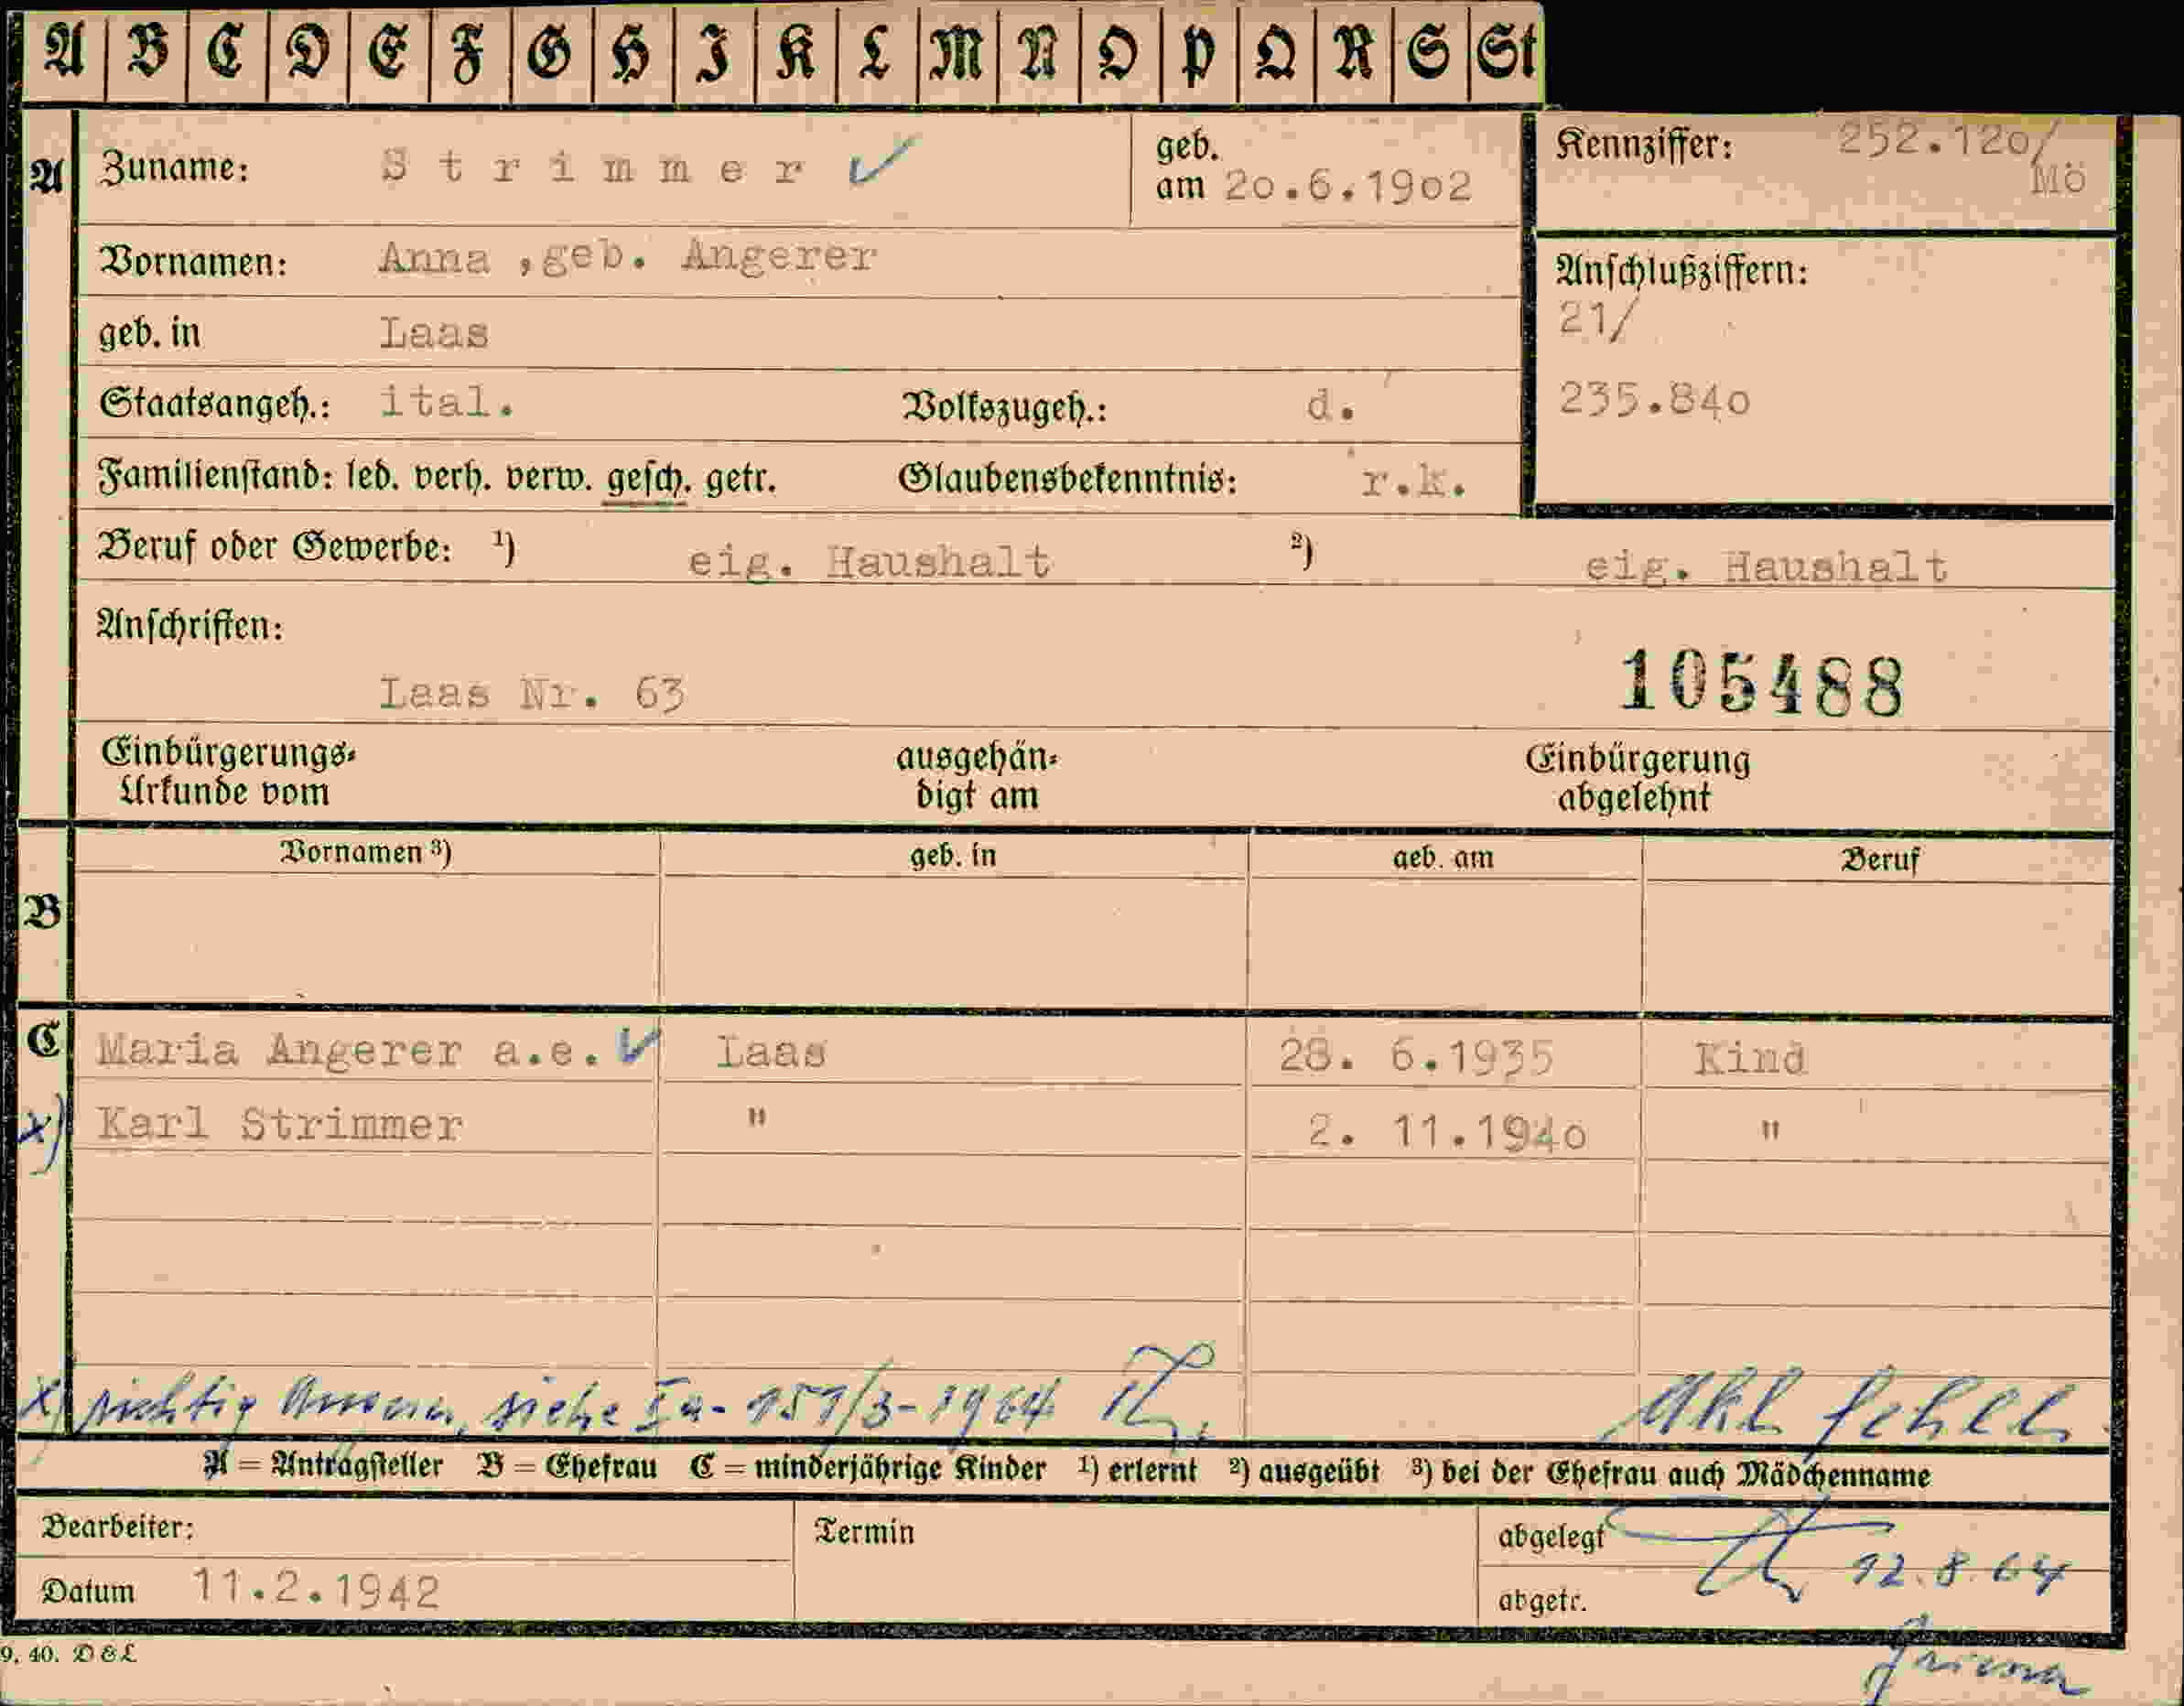 A B C D E F G H I K L M N O P Q R S St
A Zuname: Strimmer geb. am 20.6.1902 Kennziffer: 252.120/Mö
Vornamen: Anna ,geb. Angerer
Anschlußziffern:
21/
geb. in Laas
Staatsangeh.: ital. Volkszugeh.: d. 235.840
Familienstand: led. verh. verw. gesch. getr. Glaubensbekenntnis: r.k.
Beruf oder Gewerbe: 1) eig. Haushalt 2) eig. Haushalt
Anschriften:
Laas Nr. 63 105488
Einbürgerungs- ausgehän- Einbürgerung
Urkunde vom digt am abgelehnt
Vornamen 3) geb. in geb. am Beruf
B
C Maria Angerer a.e. Laas 28. 6.1935 Kind
x) Karl Strimmer " 2. 11.1940 "
x) richtig siehe Ia-151/3-1964 Akt fehlt.
A = Antragsteller B = Ehefrau C = minderjährige Kinder 1) erlernt 2) ausgeübt 3) bei der Ehefrau auch Mädchenname
Bearbeiter: Termin abgelegt 12.8.64
Datum 11.2.1942 abgetr.
9. 40. D & L